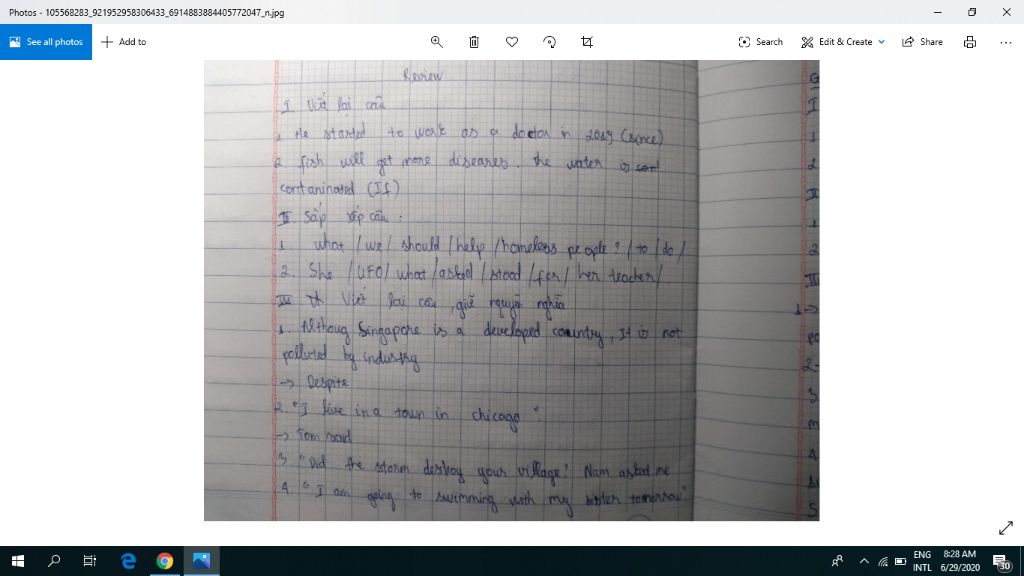 Photos - 105568283_921952958306433_6914883884405772047_n.jpg
See all photos
Add to
Search
Edit & Create
Share
Review
I. Viết lại câu
1. He started to work as a doctor in (since)
2. fish will get more diseares. the water is
contaninated (If)
II. Sắp xếp câu :
1 what / we / should / help / homeless people ? / to / do /
2. She / UFO / what / asked / stood / for / her teacher /
III Viết lại câu, giữ nguyên nghĩa
1. Althoug Singapore is a developed country, It is not
polluted by industry
-> Despite
2. "I live in a town in chicago".
-> Tom said
3. "Did the storm destroy your village? Nam asked me
4. "I am going to swimming with my sister tomorrow".
G
I
1
2
II
1
2
III
1 ->
po
2-
3
m
4
5
ENG
INTL
8:28 AM
6/29/2020
30